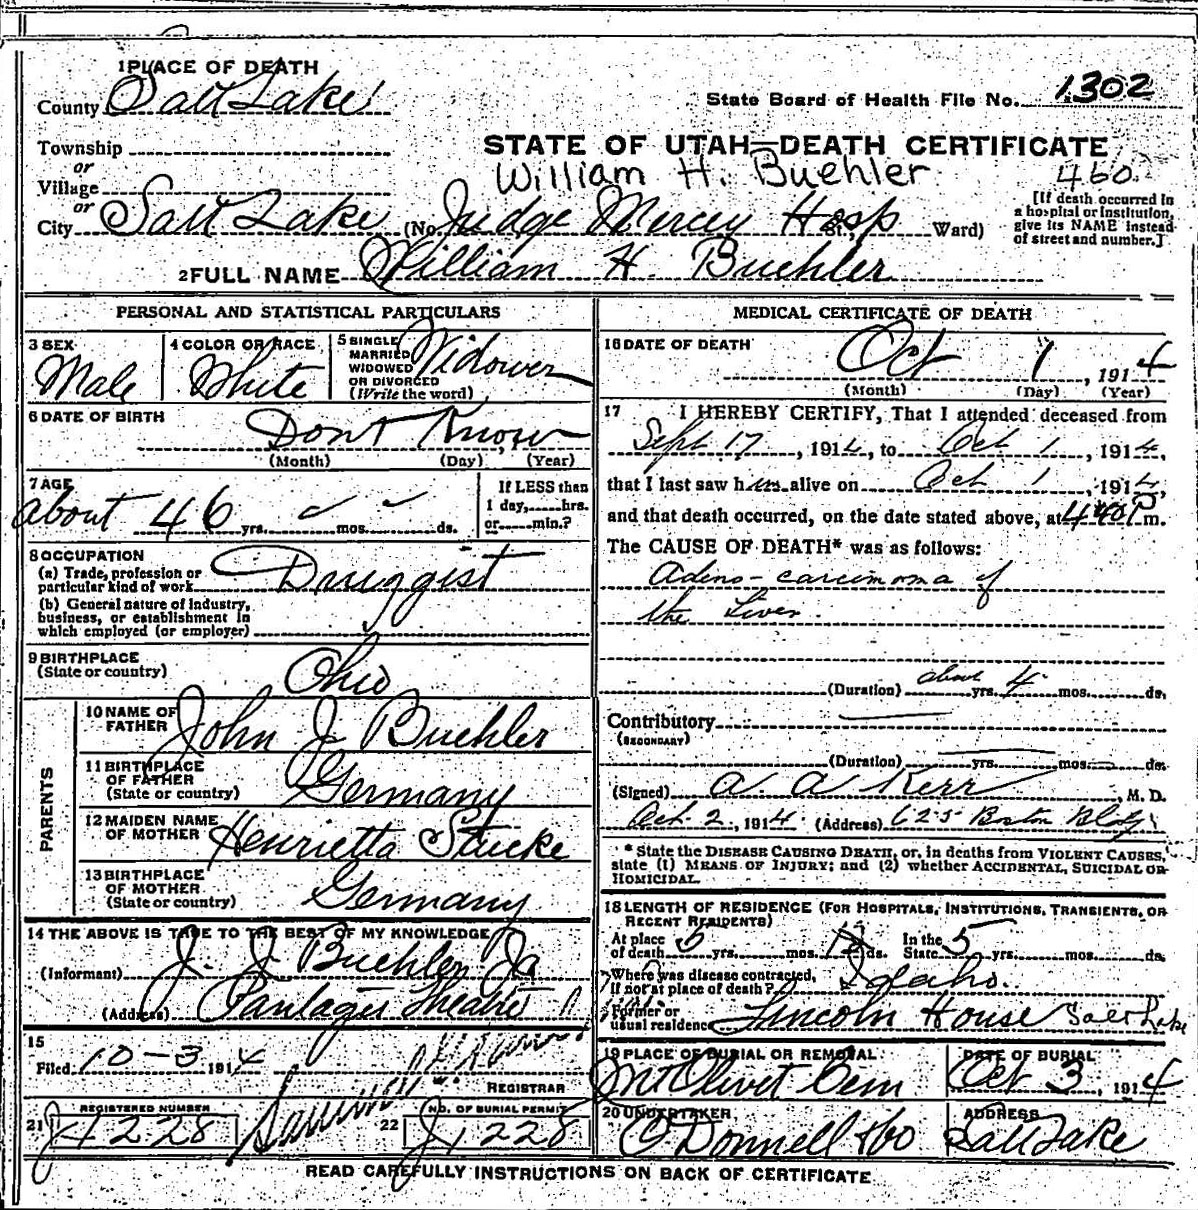 1 PLACE OF DEATH
County Salt Lake
State Board of Health File No. 1302
Township
or
Village
or
City Salt Lake (No. Judge Mercey Hosp St., Ward)
STATE OF UTAH—DEATH CERTIFICATE
William H. Buehler 460
[If death occurred in a hospital or institution, give its NAME instead of street and number.]
2 FULL NAME William H. Buehler
PERSONAL AND STATISTICAL PARTICULARS
3 SEX
Male
4 COLOR OR RACE
White
5 SINGLE MARRIED WIDOWED OR DIVORCED (Write the word)
Widower
6 DATE OF BIRTH
Dont Know
(Month) (Day) (Year)
7 AGE
about 46 yrs. mos. ds.
If LESS than 1 day, hrs. or min.?
8 OCCUPATION
(a) Trade, profession or particular kind of work Druggist
(b) General nature of industry, business, or establishment in which employed (or employer)
9 BIRTHPLACE
(State or country) Ohio
PARENTS
10 NAME OF FATHER John J Buehler
11 BIRTHPLACE OF FATHER (State or country) Germany
12 MAIDEN NAME OF MOTHER Henrietta Stucke
13 BIRTHPLACE OF MOTHER (State or country) Germany
14 THE ABOVE IS TRUE TO THE BEST OF MY KNOWLEDGE
(Informant) J. J Buehler Jr
(Address) Pantages Theatre
15
Filed 10-3 1914
REGISTRAR
REGISTERED NUMBER
21 J1228
NO. OF BURIAL PERMIT
22 J1228
MEDICAL CERTIFICATE OF DEATH
16 DATE OF DEATH
Oct 1, 1914
(Month) (Day) (Year)
17 I HEREBY CERTIFY, That I attended deceased from
Sept 17, 1914, to Oct 1, 1914,
that I last saw him alive on Oct 1, 1914,
and that death occurred, on the date stated above, at 4 40 P m.
The CAUSE OF DEATH* was as follows:
Adeno-carcinoma of
the Liver.
(Duration) about yrs. 4 mos. ds.
Contributory
(SECONDARY)
(Duration) yrs. mos. ds.
(Signed) A. A Kerr M. D.
Oct. 2, 1914. (Address) 625 Boston Bldg
* State the DISEASE CAUSING DEATH, or, in deaths from VIOLENT CAUSES, state (1) MEANS OF INJURY; and (2) whether ACCIDENTAL, SUICIDAL OR HOMICIDAL.
18 LENGTH OF RESIDENCE (FOR HOSPITALS, INSTITUTIONS, TRANSIENTS, OR RECENT RESIDENTS)
At place of death 5 yrs. mos. ds. In the State 5 yrs. mos. ds.
Where was disease contracted, If not at place of death? Idaho.
Former or usual residence Lincoln House Salt Lake
19 PLACE OF BURIAL OR REMOVAL
Mt Olivet Cem
DATE OF BURIAL
Oct 3, 1914
20 UNDERTAKER
O'Donnell & Co
ADDRESS
Salt Lake
READ CAREFULLY INSTRUCTIONS ON BACK OF CERTIFICATE